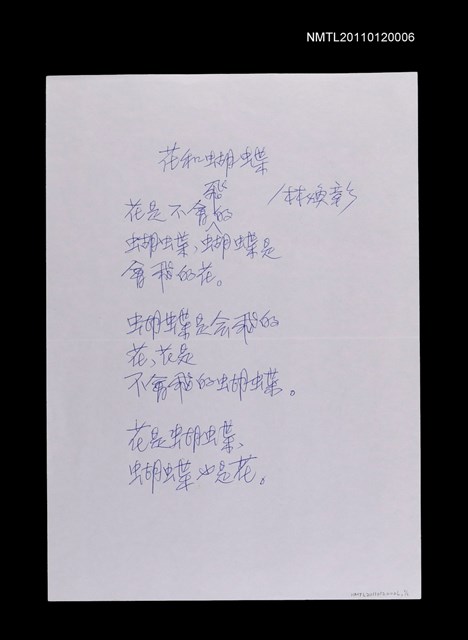 NMTL20110120006
花和蝴蝶
/林煥彰
花是不會飛的
蝴蝶、蝴蝶是
會飛的花。
蝴蝶是会飛的
花、花是
不會飛的蝴蝶。
花是蝴蝶、
蝴蝶也是花。